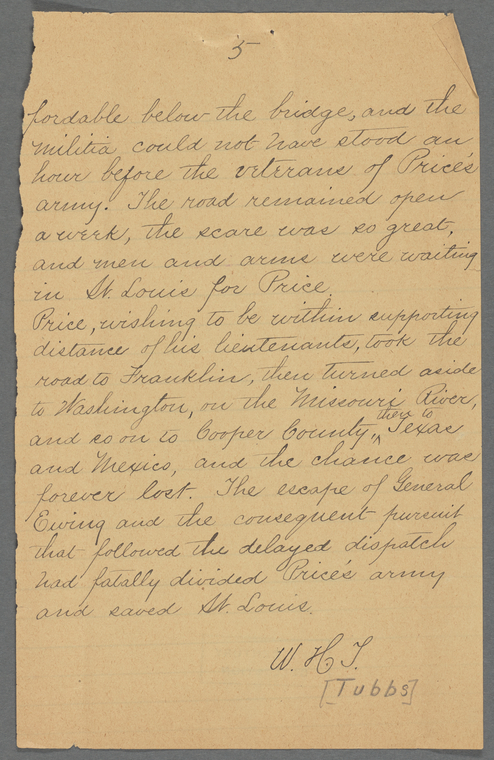 5
fordable below the bridge, and the
militia could not have stood an
hour before the veterans of Price's
army. The road remained open
a week, the scare was so great,
and men and arms were waiting
in St. Louis for Price.
Price, wishing to be within supporting
distance of his lieutenants, took the
road to Franklin, then turned aside
to Washington, on the Missouri River,
then to
and so on to Cooper County, ^ Texas
and Mexico, and the chance was
forever lost. The escape of General
Ewing and the consequent pursuit
that followed the delayed dispatch
had fatally divided Price's army
and saved St. Louis.
W. H. T.
[Tubbs]